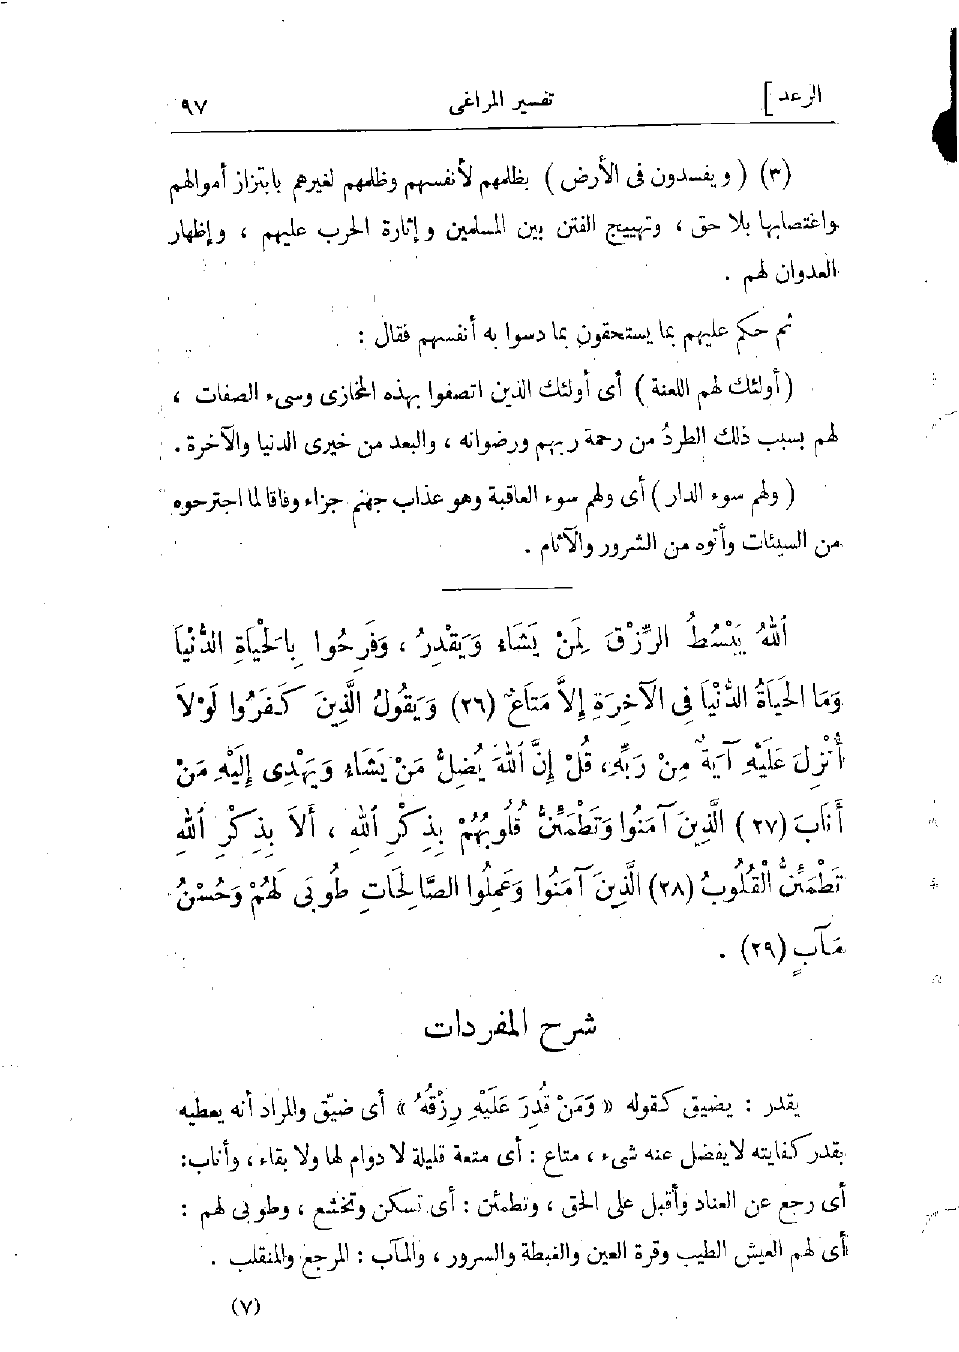 الرعد ]
تفسير المراغى
٩٧
(٣) ( ويفسدون فى الأرض ) بظلمهم لأنفسهم وظلمهم لغيرهم بابتزاز أموالهم
واغتصابها بلا حق ، وتهييج الفتن بين المسلمين وإثارة الحرب عليهم ، وإظهار
العدوان لهم .
ثم حكم عليهم بما يستحقون بما دسوا به أنفسهم فقال :
(أولئك لهم اللعنة ) أى أولئك الذين اتصفوا بهذه المخازى وسىء الصفات ،
لهم بسبب ذلك الطردُ من رحمة ربهم ورضوانه ، والبعد من خيرى الدنيا والآخرة .
( ولهم سوء الدار ) أى ولهم سوء العاقبة وهو عذاب جهنم جزاء وفاقا لما اجترحوه
من السيئات وأتوه من الشرور والآثام .
اَللهُ يَبْسُطُ الرِّزْقَ لِمَنْ يَشَاءُ وَيَقْدِرُ ، وَفَرِحُوا بِالْحَيَاةِ الدُّنْيَا
وَمَا الْحَيَاةُ الدُّنْيَا فِى الْآخِرَةِ إِلاَّ مَتَاعٌ (٢٦) وَيَقُولُ الَّذِينَ كَفَرُوا لَوْلاَ
أُنْزِلَ عَلَيْهِ آيَةٌ مِنْ رَبِّهِ، قُلْ إِنَّ اللهَ يُضِلُّ مَنْ يَشَاءُ وَيَهْدِى إِلَيْهِ مَنْ
أَنَابَ (٢٧) الَّذِينَ آمَنُوا وَتَطْمَئِنُّ قُلُوبُهُمْ بِذِكْرِ اللهِ ، أَلاَ بِذِكْرِ اللهِ
تَطْمَئِنُّ الْقُلُوبُ (٢٨) الَّذِينَ آمَنُوا وَعَمِلُوا الصَّالِحَاتِ طُوبَى لَهُمْ وَحُسْنُ
مَآبٍ (٢٩) .
شرح المفردات
يقدر : يضيق كقوله « وَمَنْ قُدِرَ عَلَيْهِ رِزْقُهُ » أى ضيّق والمراد أنه يعطيه
بقدر كفايته لا يفضل عنه شىء ، متاع : أى متعة قليلة لا دوام لها ولا بقاء ، وأناب:
أى رجع عن العناد وأقبل على الحق ، وتطمئن : أى تسكن وتخشع ، وطوبى لهم :
أى لهم العيش الطيب وقرة العين والغبطة والسرور ، والمآب : المرجع والمنقلب .
(٧)